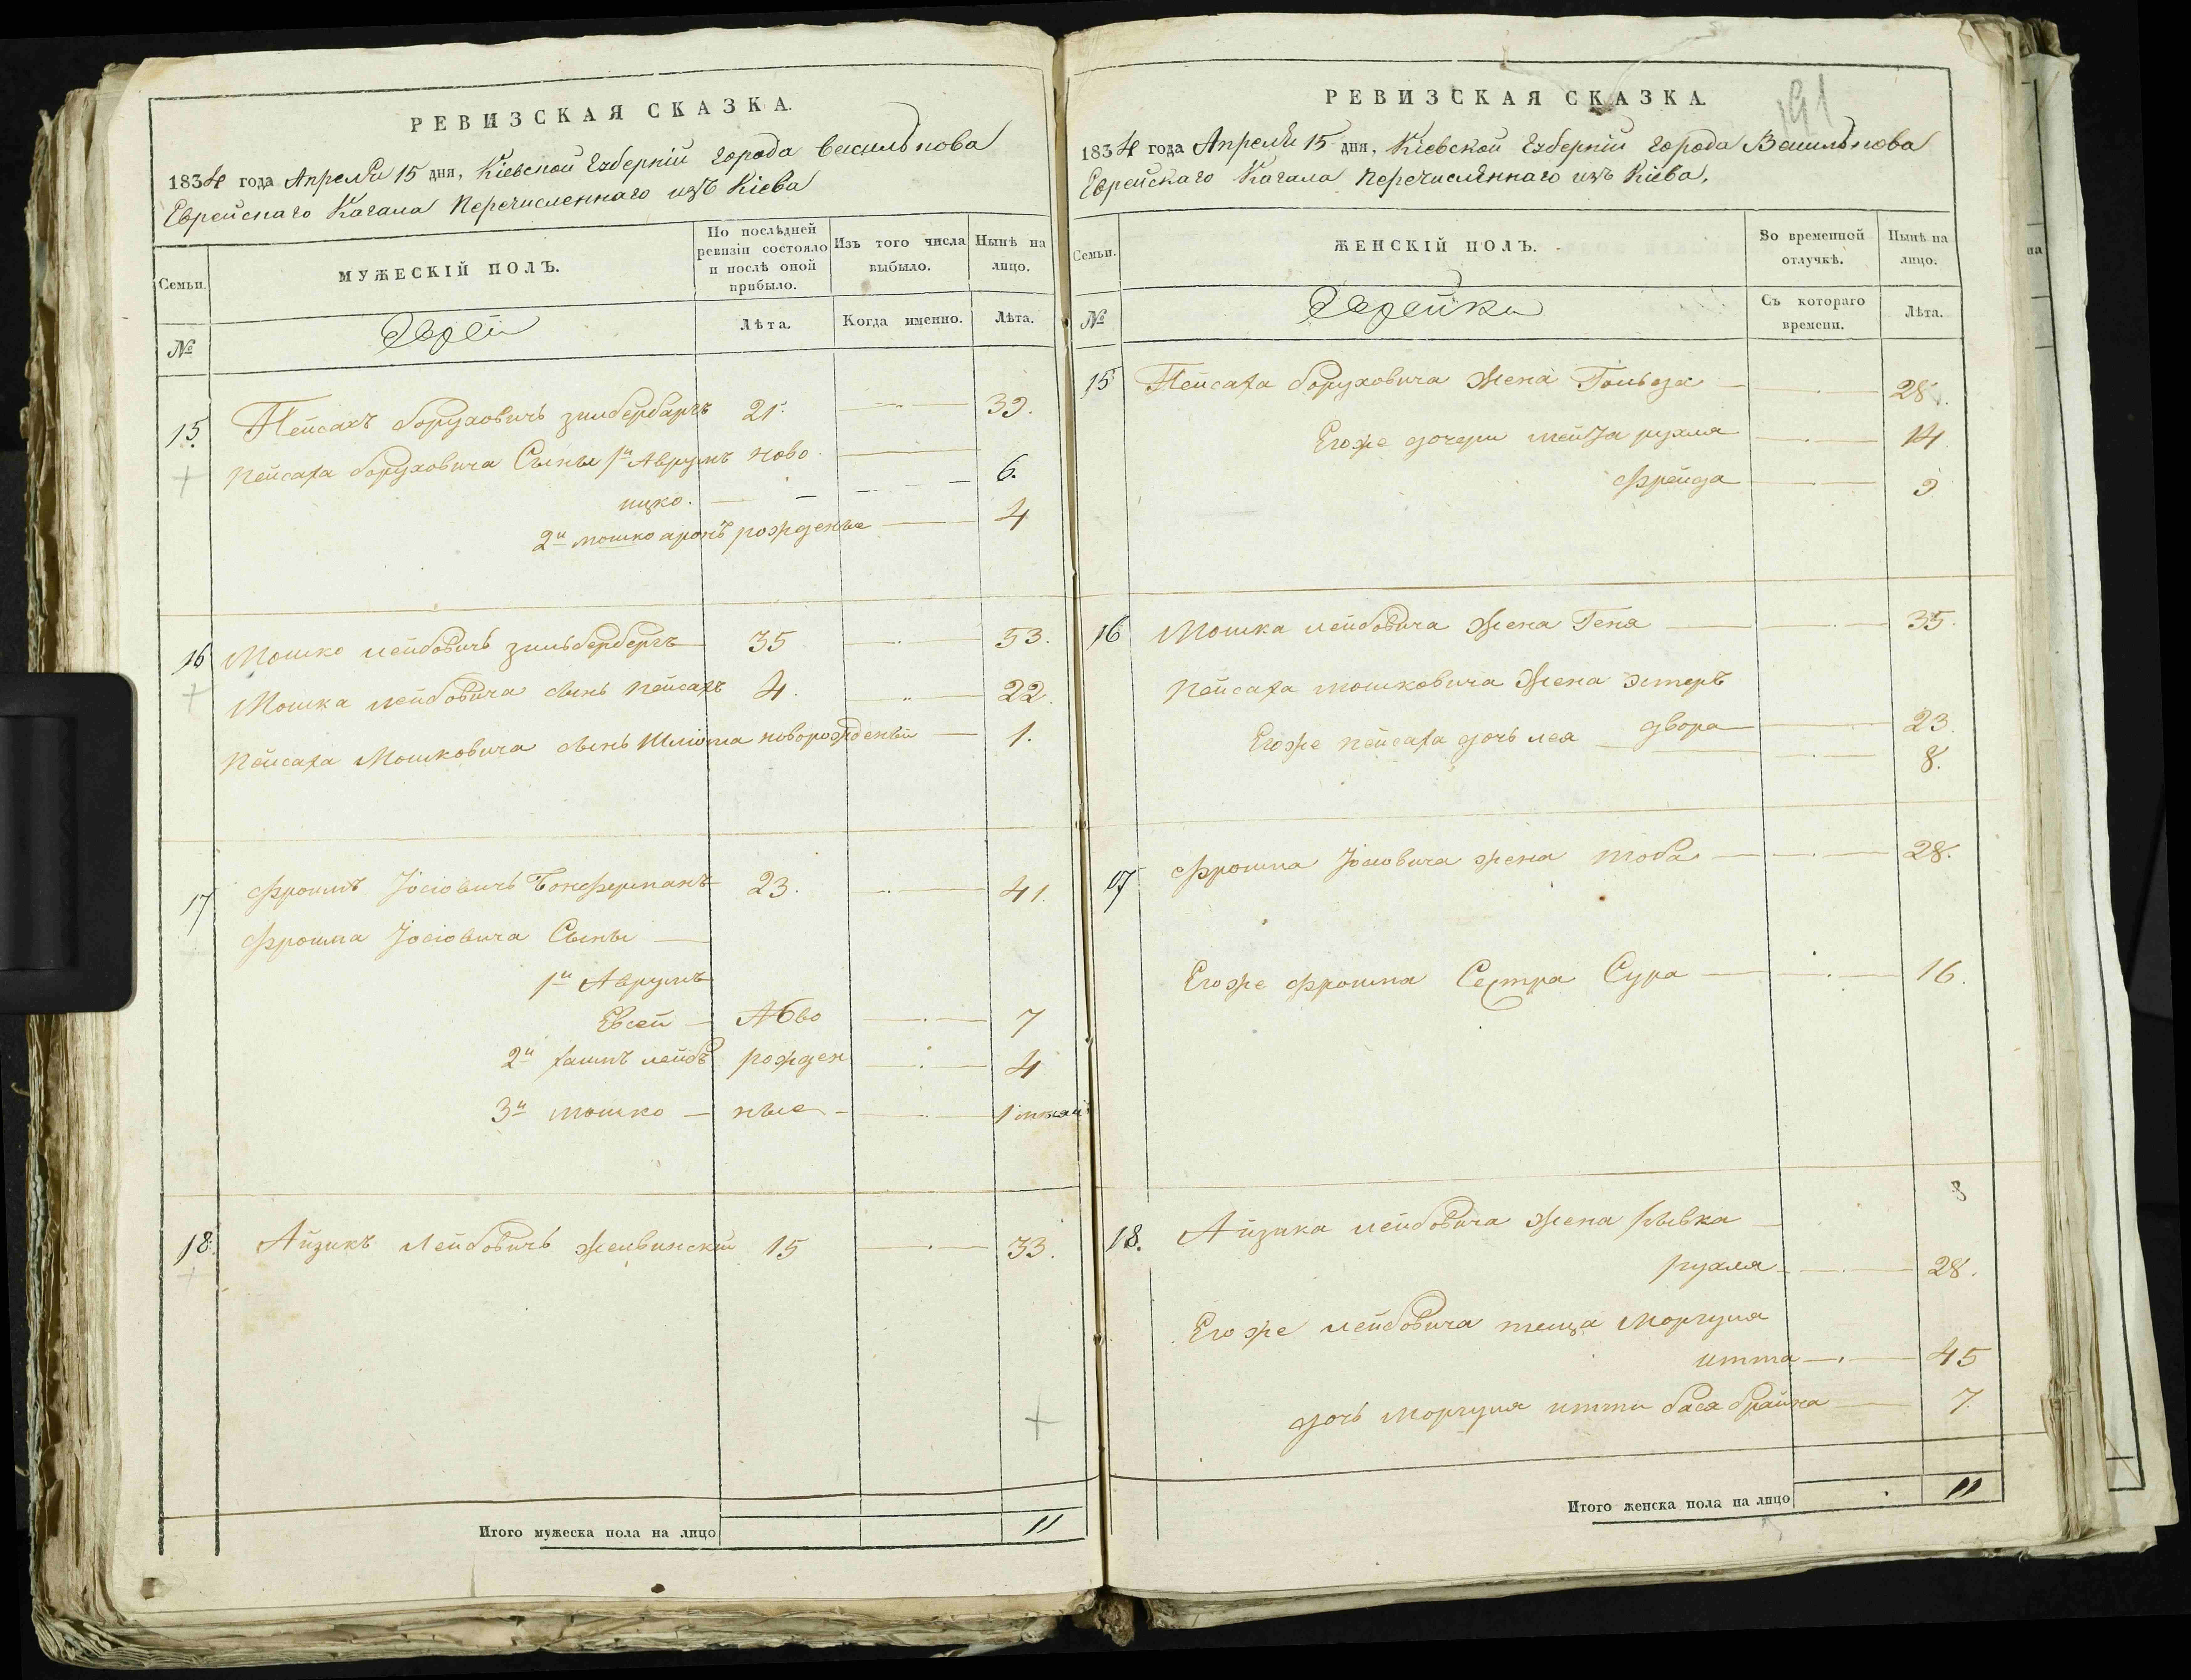 РЕВИЗСКАЯ СКАЗКА.
1834 года Апреля 15 дня, Кіевской Губерніи города Василькова
Еврейскаго Кагала перечисленнаго изъ Кіева
Семьи.
МУЖЕСКІЙ ПОЛЪ.
По послѣдней ревизіи состояло и послѣ оной прибыло.
Изъ того числа выбыло.
Нынѣ на лицо.
№
Евреи
Лѣта.
Когда именно.
Лѣта.
15 Пейсахъ Боруховичъ Зилбербаргъ 21. 39.
Пейсаха Боруховича Сыны 1й Аврумъ ново
ицко. 6.
2й мошко аронъ рожденые 4
16 Мошко лейбовичъ зильберберъгъ 35 53.
Мошка лейбовича сынъ пейсахъ 4. 22.
Пейсаха Мошковича сынъ Шліома новорожденый 1.
17 Фроимъ Іосіовичъ Бонферманъ 23. 41.
Фроима Іосіовича Сыны
1й Аврумъ
Евсей Ново 7
2й хаимъ лейбъ рожден 4
3й мошко ные 1
18. Айзикъ Лейбовичъ 15 33.
Итого мужеска пола на лицо 11
РЕВИЗСКАЯ СКАЗКА.
191
1834 года Апреля 15 дня, Кіевской Губерніи города Василькова
Еврейскаго Кагала перечисленнаго изъ Кіева.
Семьи.
ЖЕНСКІЙ ПОЛЪ.
Во временной отлучкѣ.
Нынѣ на лицо.
№
Еврейки
Съ котораго времени.
Лѣта.
15 Пейсаха Боруховича жена Гольда 28.
Егоже дочери нейха рухля 14
Фрейда 9
16 Мошка лейбовича жена Геня 35.
Пейсаха мошковича жена эстеръ
двора 23.
Егоже пейсаха дочь лея 8.
17 Фроима Іосіовича жена тоба 28.
Егоже фроима Сестра Сура 16.
18. Айзика лейбовича жена рывка
рухля 28.
Егоже лейбовича теща Моргуля
итта 45
дочь моргуля итти бася брайна 7.
Итого женска пола на лицо 11